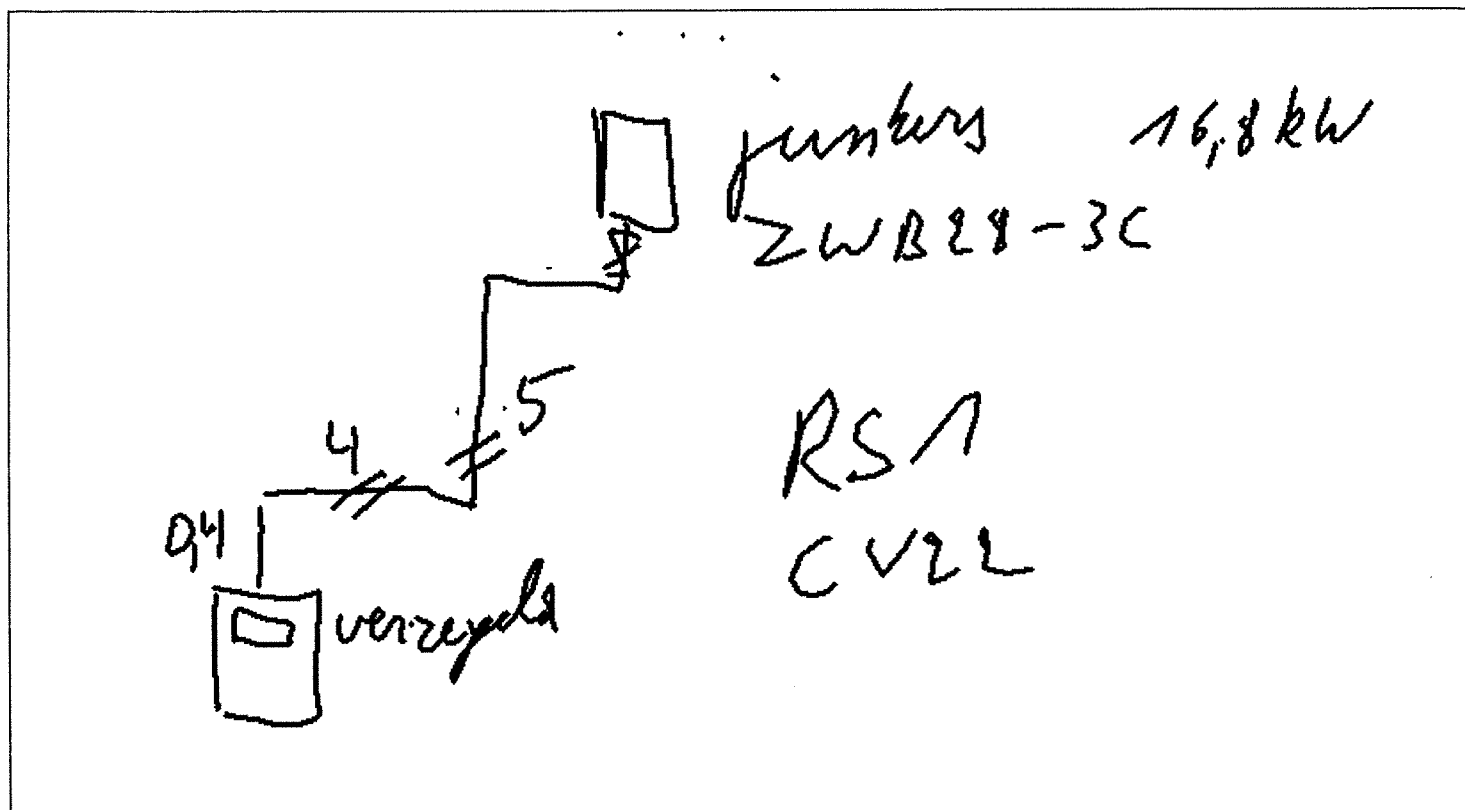 junkers 16,8 kW
ZWB28-3C
5
4
RS1
0,4
CV22
verzegeld